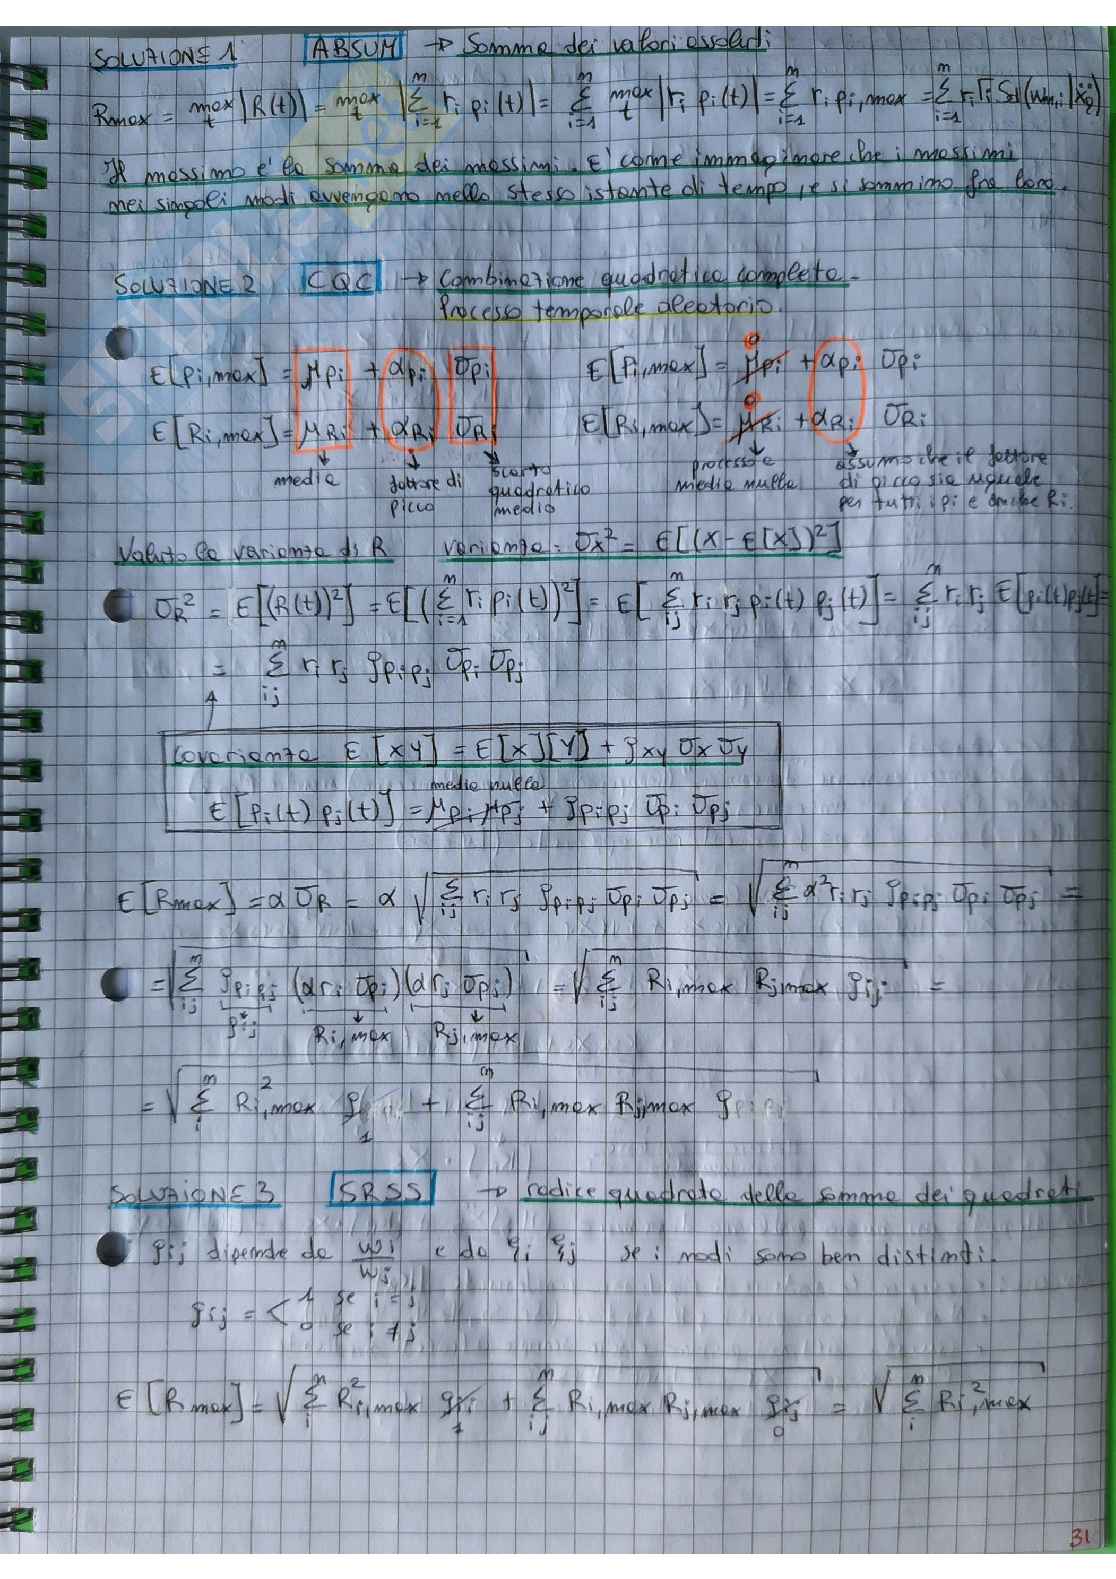 SOLUZIONE 1 ABSUM → Somma dei valori assoluti
Rmax = max_t |R(t)| = max_t |Σ_{i=1}^{m} ri pi(t)| = Σ_{i=1}^{m} max_t |ri pi(t)| = Σ_{i=1}^{m} ri pi,max = Σ_{i=1}^{m} ri Γi
Il massimo e' la somma dei massimi. E' come immaginare che i massimi
nei singoli modi avvengono nello stesso istante di tempo, e si sommino fra loro.
SOLUZIONE 2 CQC → Combinazione quadratica completa.
Processo temporale aleatorio.
E[Pi,max] = μpi + αpi σpi E[Pi,max] = μpi + αpi σpi
0
E[Ri,max] = μRi + αRi σRi E[Ri,max] = μRi + αRi σRi
0
media fattore di picco scarto quadratico medio processo a media nulla assumo che il fattore
di picco sia uguale
per tutti i pi e anche Ri.
Valuto la varianza di R varianza: σx² = E[(X - E[X])²]
σR² = E[(R(t))²] = E[(Σ_{i=1}^{m} ri pi(t))²] = E[Σ_{ij}^{m} ri rj pi(t) pj(t)] = Σ_{ij}^{m} ri rj E[pi(t)pj(t)] =
= Σ_{ij}^{m} ri rj ρpipj σpi σpj
Covarianza E[XY] = E[X][Y] + ρxy σx σy
media nulla
E[Pi(t) pj(t)] = μpi μpj + ρpipj σpi σpj
E[Rmax] = α σR = α √(Σ_{ij} ri rj ρpipj σpi σpj) = √(Σ_{ij}^{m} α² ri rj ρpipj σpi σpj) =
= √(Σ_{ij}^{m} ρpipj (α ri σpi)(α rj σpj)) = √(Σ_{ij}^{m} Ri,max Rj,max ρij) =
ρij Ri,max Rj,max
= √(Σ_{i}^{m} Ri²,max ρ + Σ_{ij}^{m} Ri,max Rj,max ρpipj)
1
SOLUZIONE 3 SRSS → radice quadrata della somma dei quadrati
ρij dipende da ωi/ωj e da ξi ξj se i modi sono ben distinti.
ρij = < 1 se i = j
0 se i ≠ j
E[Rmax] = √(Σ_{i}^{m} Ri²,max ρij + Σ_{ij}^{m} Ri,max Rj,max ρij) = √(Σ_{i}^{m} Ri²,max)
1 0
31